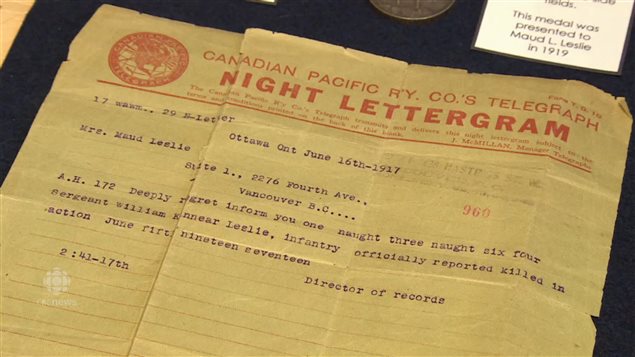 fields.
This medal was
presented to
Maud L. Leslie
in 1919
CANADIAN PACIFIC R'Y. CO.'S TELEGRAPH
NIGHT LETTERGRAM
The Canadian Pacific R'y Co.'s Telegraph transmits and delivers this night lettergram subject to the
terms and conditions printed on the back of this blank.
J. McMILLAN, Manager Telegraphs
17 wawm.. 29 N-Letter
Ottawa Ont June 16th-1917
Mrs. Maud Leslie
Suite 1., 2276 Fourth Ave.,
Vancouver B.C....
960
A.H. 172 Deeply regret inform you one naught three naught six four
Sergeant William Kinnear Leslie, infantry officially reported killed in
action June fifth nineteen seventeen
Director of records
2:41-17th
cbc news